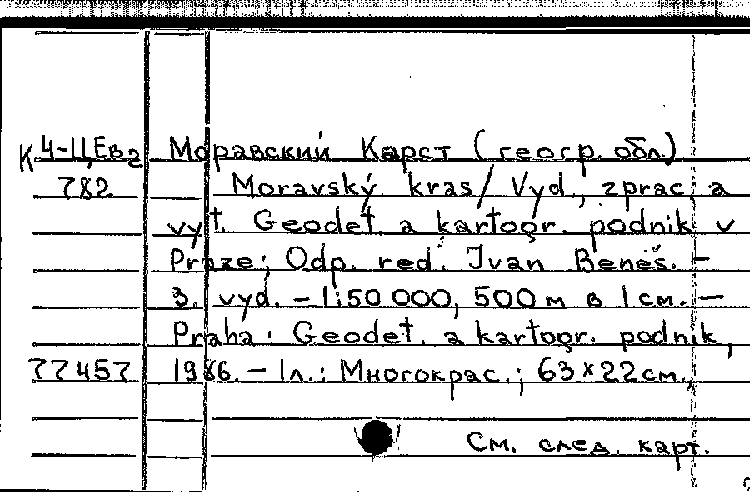 К 4-ЦЕвг Моравский Карст (геогр. обл)
782 Moravský kras / Vyd., zprac. a
vyt. Geodet. a kartogr. podnik v
Praze; Odp. red. Ivan Beneš. –
3. vyd. – 1:50 000, 500 м в 1 см. –
Praha: Geodet. a kartogr. podnik,
77457 1986. – 1 л.: Многокрас.; 63×22 см.,
См. след. карт.